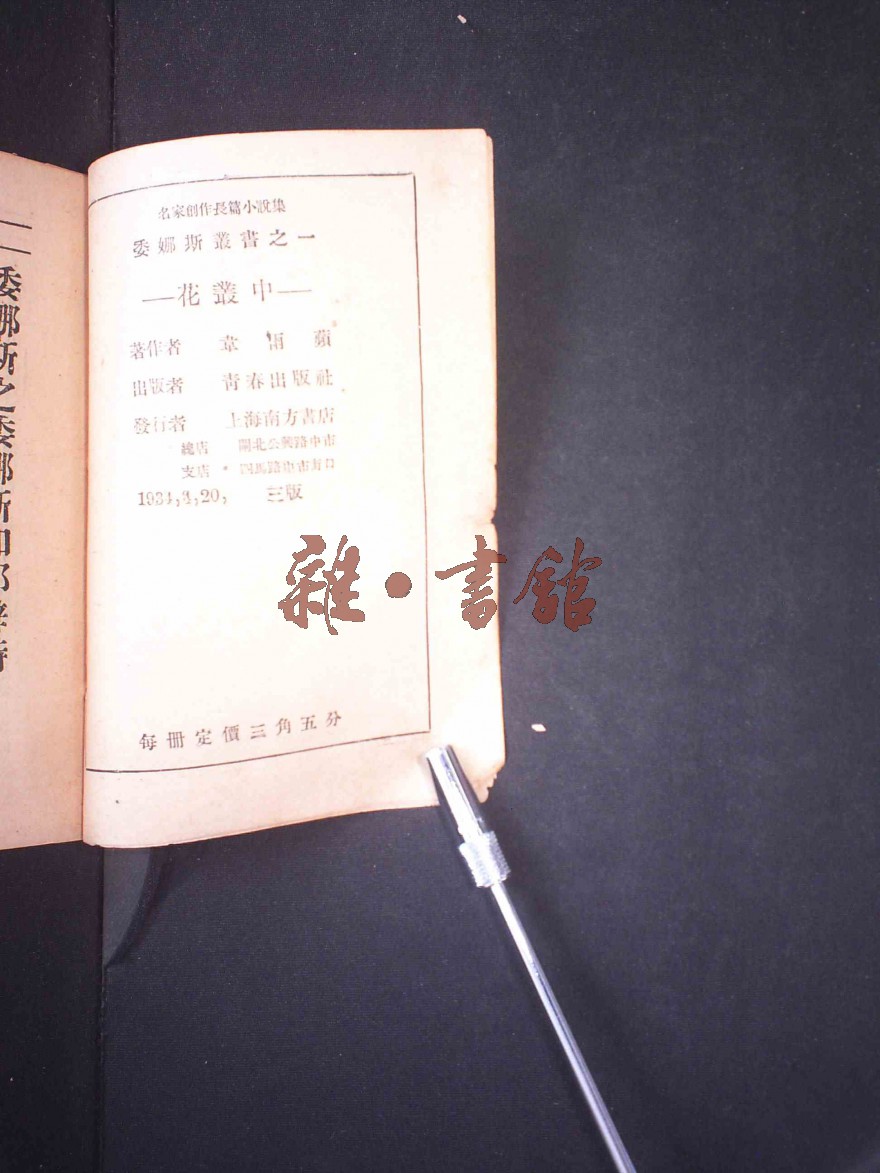 名家創作長篇小說集
委娜斯叢書之一
—花叢中—
著作者 韋雨蘋
出版者 青春出版社
發行者 上海南方書店
總店 閘北公興路中市
支店 四馬路中市
1934,3,20, 三版
每冊定價三角五分
雜·書館
委娜斯之委娜斯如